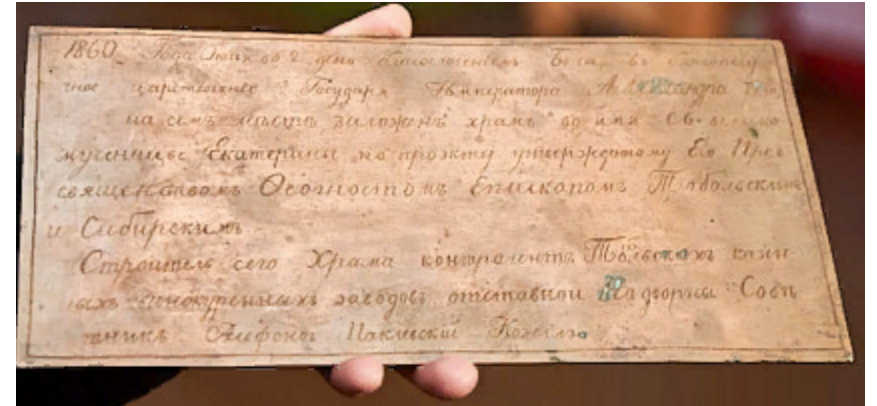 1860 Года Июня во 2 день благословенiемъ Бога въ благополу
чное царствованiе Государя Императора Александра
на семъ мѣстѣ заложенъ храмъ во имя Св. велико
мученицы Екатерины по проэкту утвержденному Его Прео
священствомъ Ѳеогностомъ Епископомъ Тобольскимъ
и Сибирскимъ
Строитель сего Храма контрагентъ Тобольскихъ казен
ныхъ винокуренныхъ заводовъ отставной Надворный Совѣ
тникъ Альфонсъ Паклевскiй Козелло